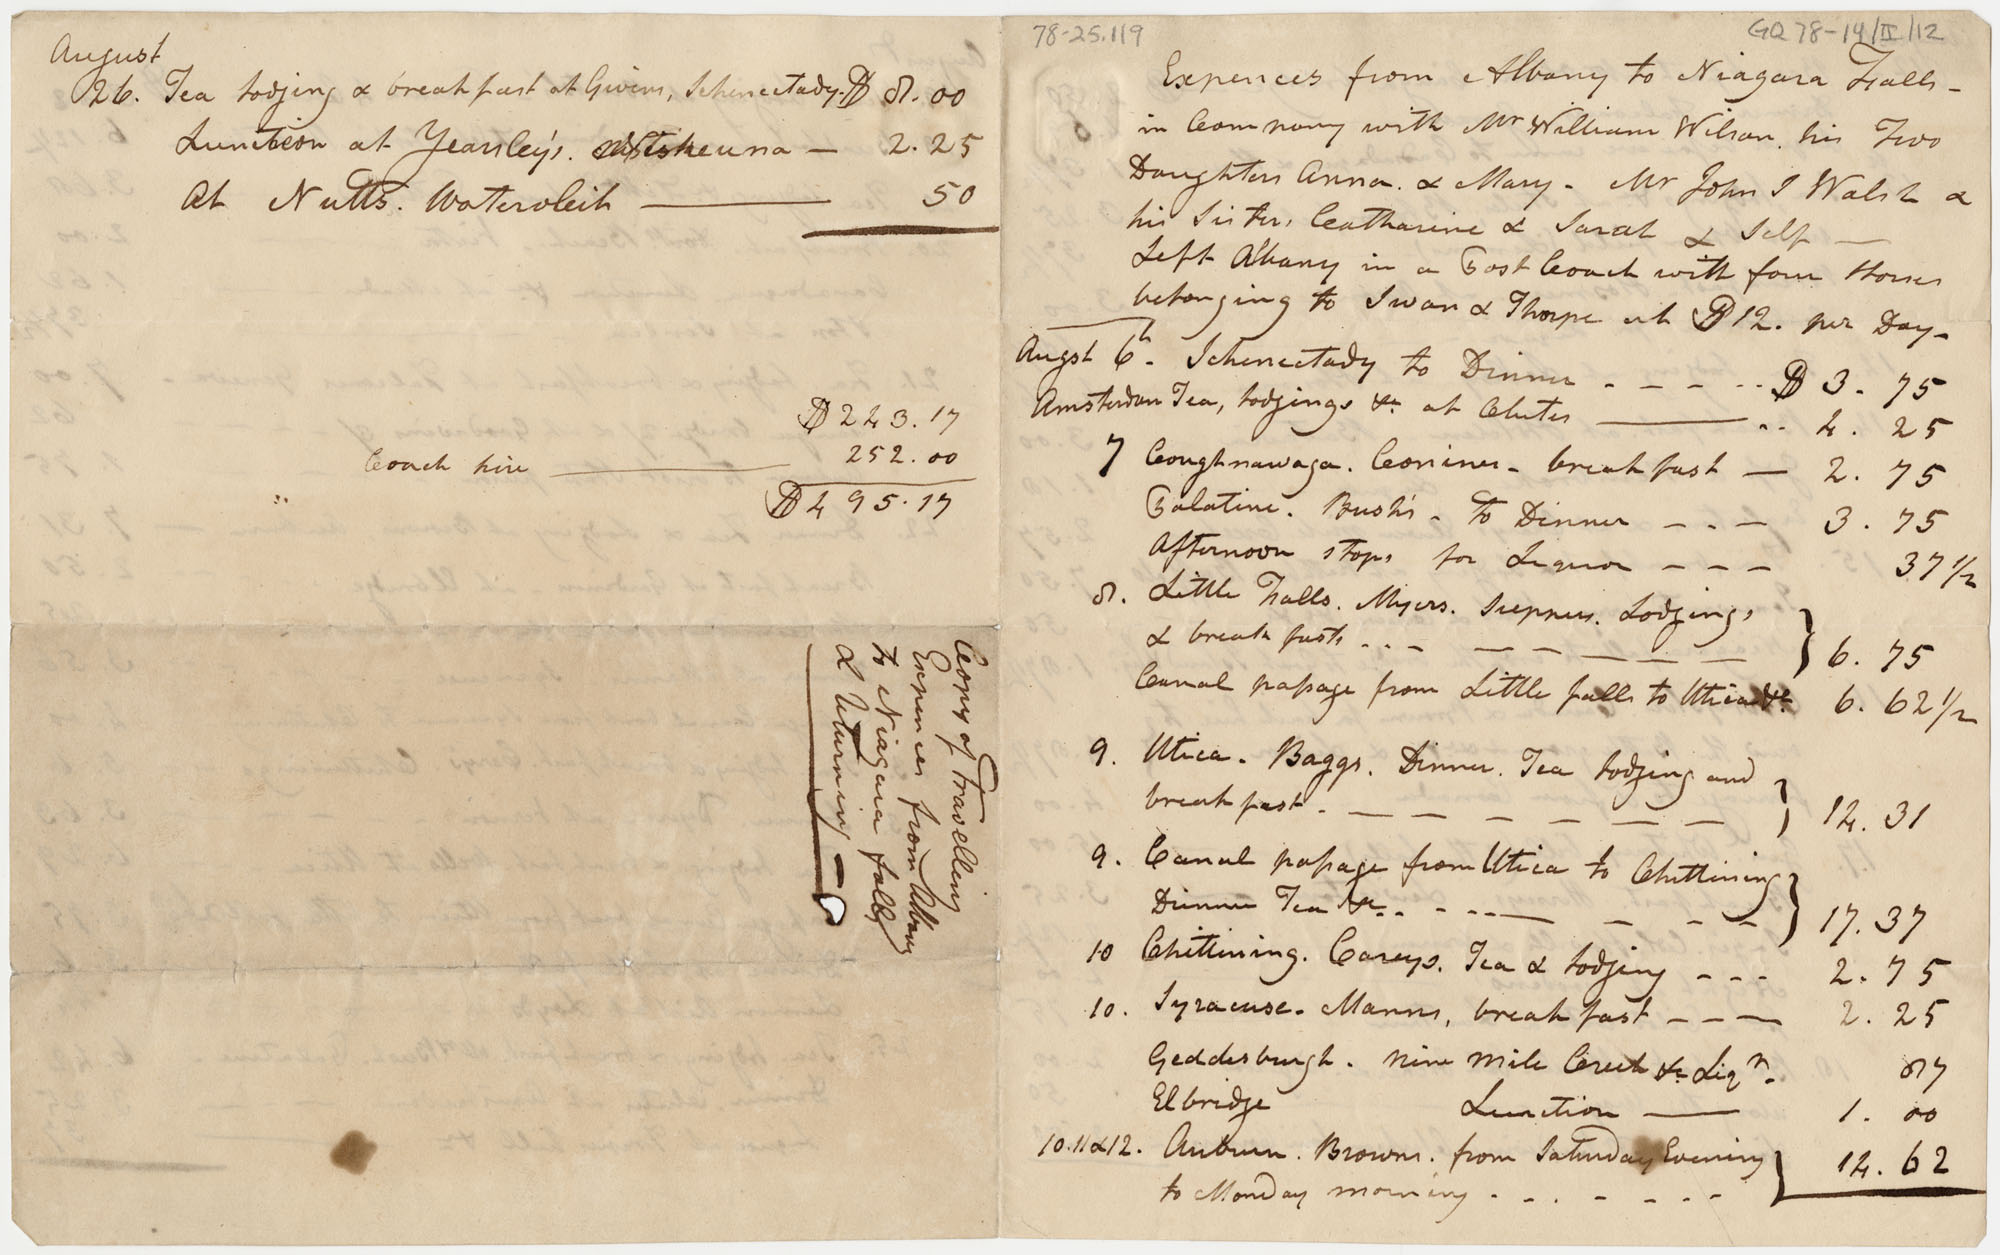 August
26. Tea Lodjing & breakfast at Givens, Schenectady. $ 8.00
Lunction at Yearsley's. Niskeuna — 2.25
At Nutts. Watervleit — 50
$243.17
Coach hire — 252.00
$495.17
Coppy of Travelling
Expences from Albany
to Niagara falls
& Returning —
78-25.119
GQ 78-14/II/12
Expences from Albany to Niagara Falls -
in Company with Mr William Wilson. his Two
Daughters Anna. & Mary - Mr John I Walsh &
his Sisters Catharine & Sarah & Self —
Left Albany in a Post Coach with four Horses
belonging to Swan & Thorpe at $12. per Day -
Augst 6th - Schenectady to Dinner - - - - - $ 3.75
Amsterdam Tea, Lodjings &c at Chutes — 4.25
7 Coughnawaga. Coniners - breakfast — 2.75
Palatine. Bush's - to Dinner - - - 3.75
Afternoon stops for Liquor - - - 37 1/2
8. Little Falls. Myers. Suppers. Lodjings
& breakfasts - - - — — — — — — } 6.75
Canal passage from Little falls to Utica &c 6.62 1/2
9. Utica - Baggs. Dinner. Tea Lodjing and
breakfast - — — — — — — } 14.31
9. Canal passage from Utica to Chittining
Dinner Tea &c - - - - - — — — — } 17.37
10 Chittining. Careys. Tea & Lodjing - - - 2.75
10. Syracuse - Manns, breakfast - - - — 2.25
Geddesburgh. Nine Mile Creek &c Liqr. - 87
Elbridge Lunction — 1.00
10.11 & 12. Auburn. Browns. from Saturday Evening
to Monday morning - - - - - - - } 14.62